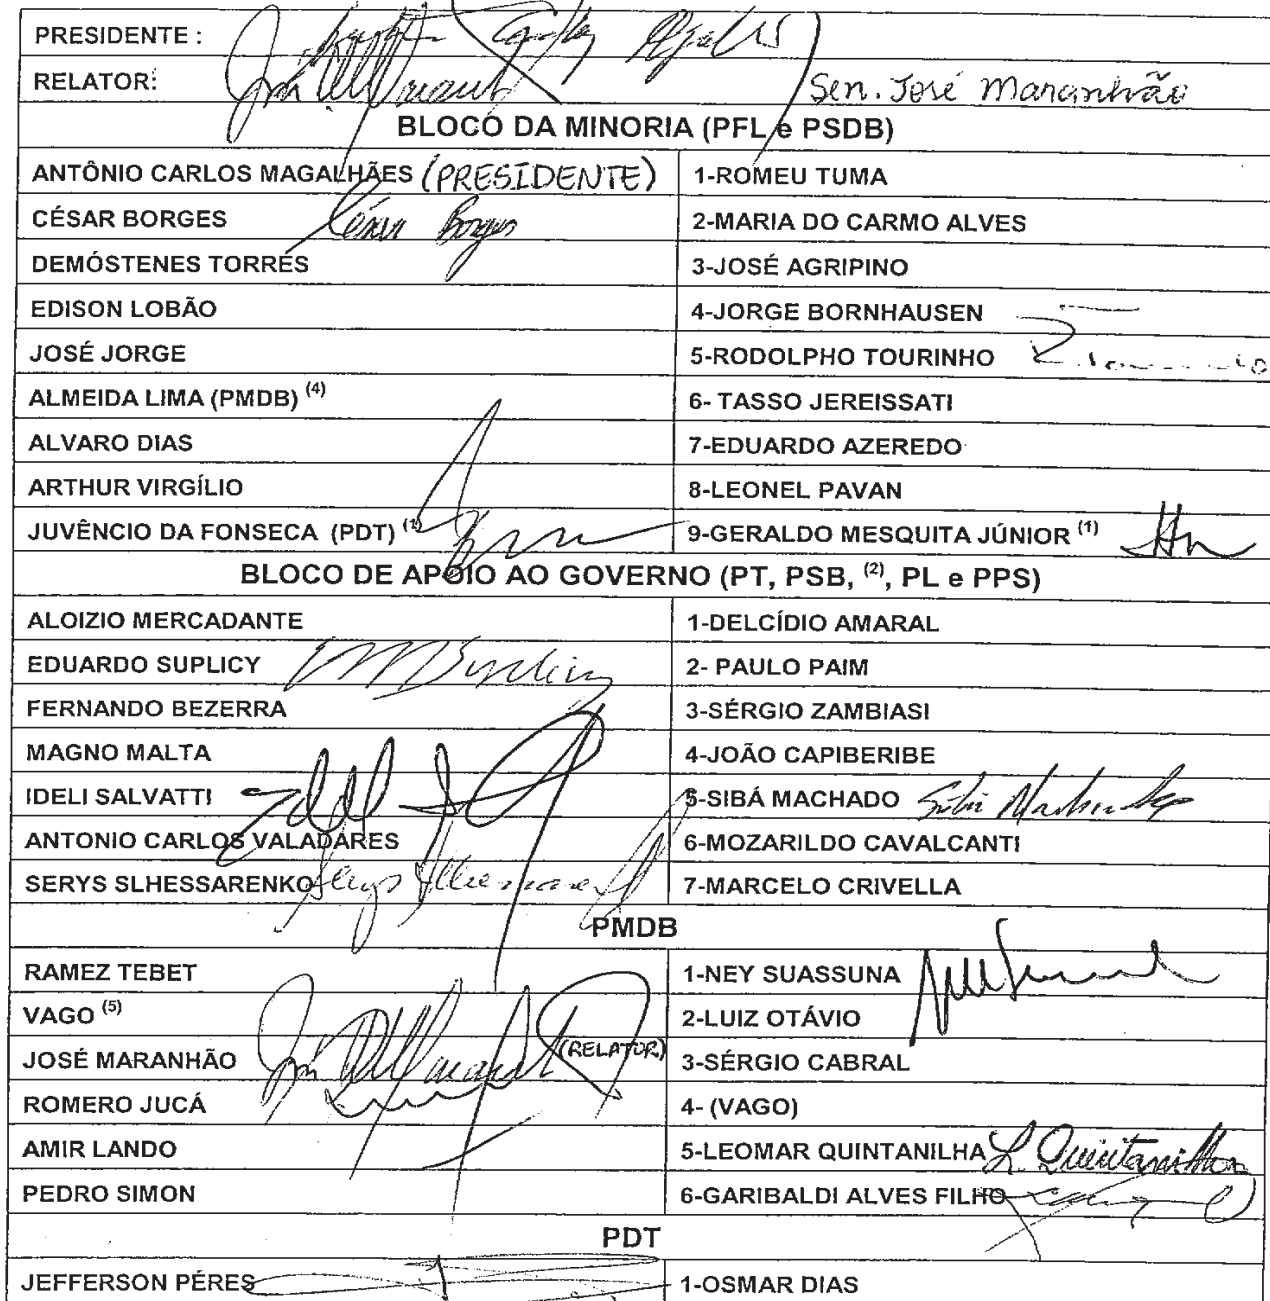 PRESIDENTE :
RELATOR: Sen. José Maranhão
BLOCO DA MINORIA (PFL e PSDB)
ANTÔNIO CARLOS MAGALHÃES (PRESIDENTE) 1-ROMEU TUMA
CÉSAR BORGES César Borges 2-MARIA DO CARMO ALVES
DEMÓSTENES TORRES 3-JOSÉ AGRIPINO
EDISON LOBÃO 4-JORGE BORNHAUSEN
JOSÉ JORGE 5-RODOLPHO TOURINHO
ALMEIDA LIMA (PMDB) (4) 6- TASSO JEREISSATI
ALVARO DIAS 7-EDUARDO AZEREDO
ARTHUR VIRGÍLIO 8-LEONEL PAVAN
JUVÊNCIO DA FONSECA (PDT) (1) 9-GERALDO MESQUITA JÚNIOR (1)
BLOCO DE APOIO AO GOVERNO (PT, PSB, (2), PL e PPS)
ALOIZIO MERCADANTE 1-DELCÍDIO AMARAL
EDUARDO SUPLICY Suplicy 2- PAULO PAIM
FERNANDO BEZERRA 3-SÉRGIO ZAMBIASI
MAGNO MALTA 4-JOÃO CAPIBERIBE
IDELI SALVATTI 5-SIBÁ MACHADO Sibá Machado
ANTONIO CARLOS VALADARES 6-MOZARILDO CAVALCANTI
SERYS SLHESSARENKO Serys Slhessarenko 7-MARCELO CRIVELLA
PMDB
RAMEZ TEBET 1-NEY SUASSUNA
VAGO (5) 2-LUIZ OTÁVIO
JOSÉ MARANHÃO (RELATOR) 3-SÉRGIO CABRAL
ROMERO JUCÁ 4- (VAGO)
AMIR LANDO 5-LEOMAR QUINTANILHA L. Quintanilha
PEDRO SIMON 6-GARIBALDI ALVES FILHO
PDT
JEFFERSON PÉRES 1-OSMAR DIAS